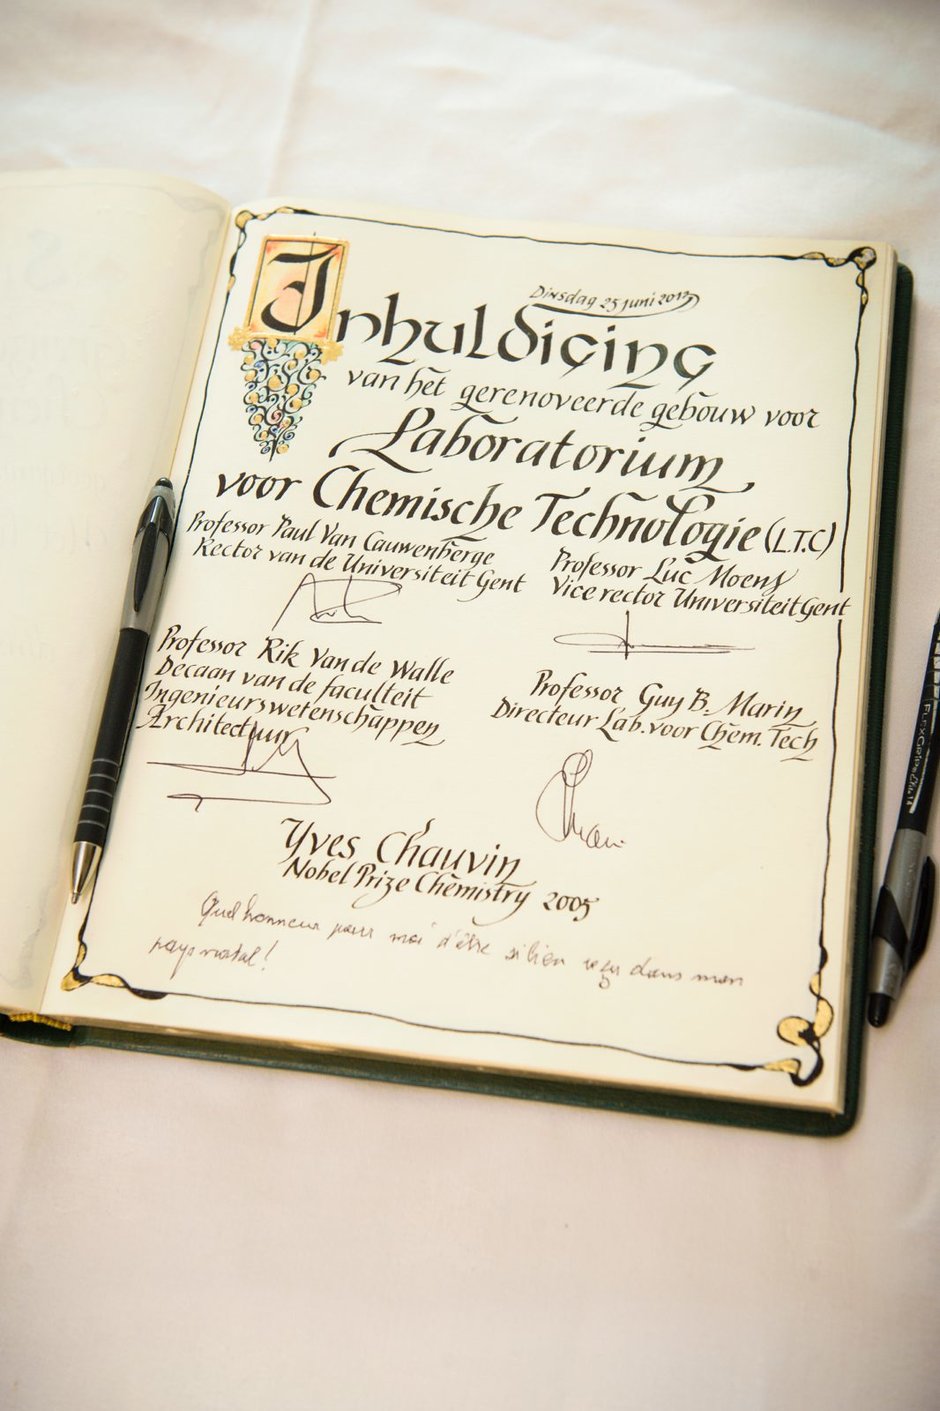 Dinsdag 25 juni 2013
Inhuldiging
van het gerenoveerde gebouw voor
Laboratorium
voor Chemische Technologie (L.T.C)
Professor Paul Van Cauwenberge
Rector van de Universiteit Gent
Professor Luc Moens
Vice rector Universiteit Gent
Professor Rik Van de Walle
Decaan van de faculteit
Ingenieurswetenschappen
Architectuur
Professor Guy B. Marin
Directeur Lab. voor Chem. Tech
Yves Chauvin
Nobel Prize Chemistry 2005
Quel honneur pour moi d'être si bien reçu dans mon
pays natal!
FLEXGRIP